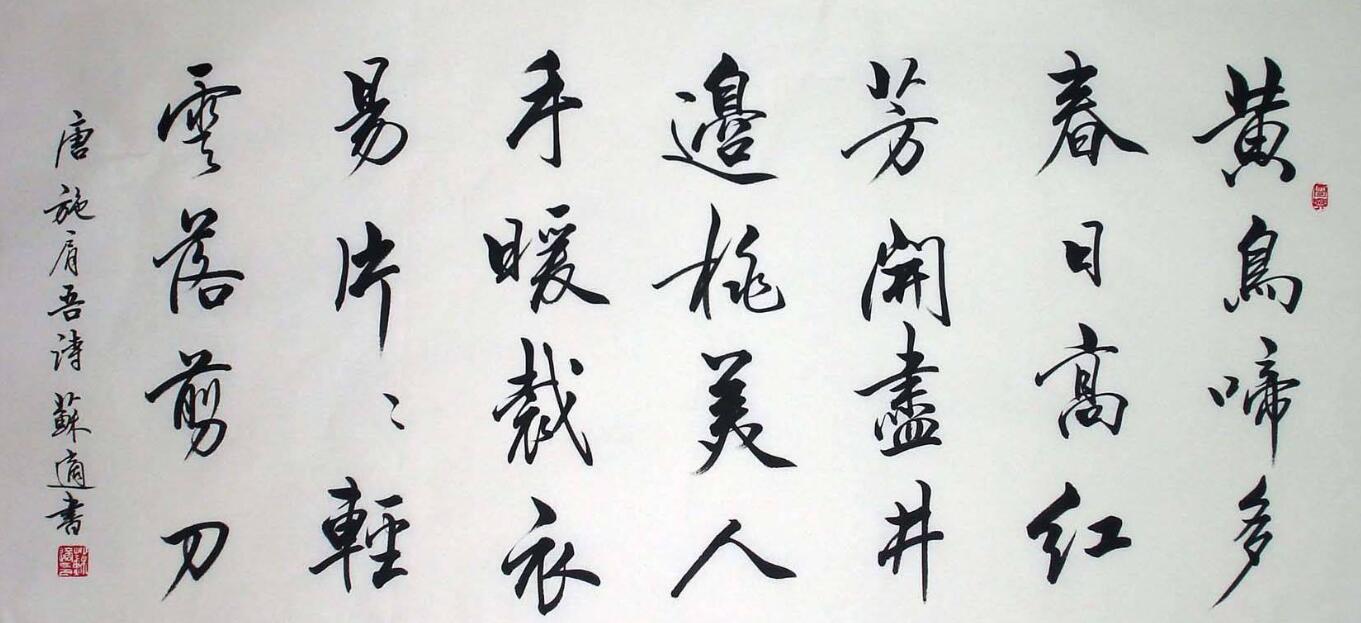 黄鳥啼多
春日高红
芳開盡井
邊桃美人
手暖裁衣
易片〻輕
雲落剪刀
唐施肩吾詩蘇適書